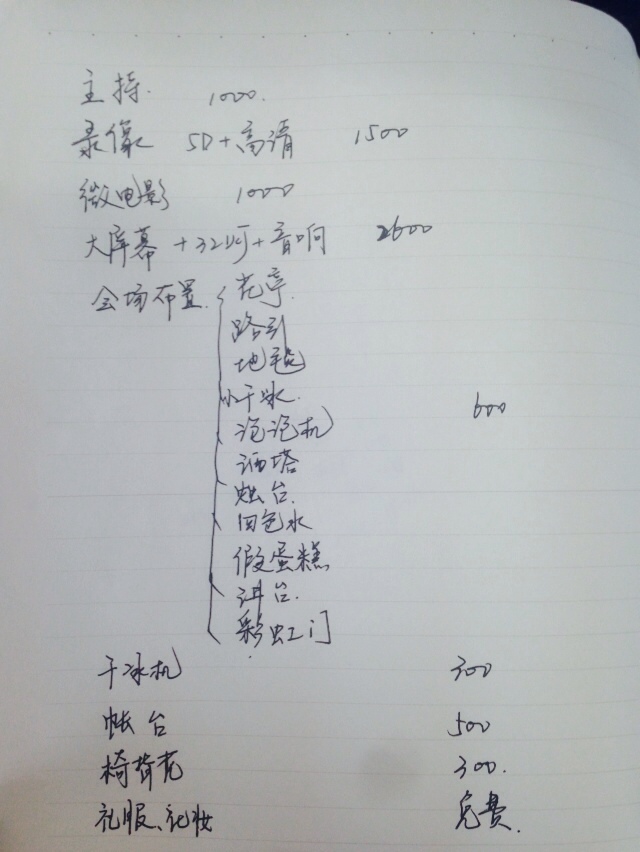 主持. 1000.
录像 5D+高清 1500
微电影 1000
大屏幕+32灯+音响 2600
会场布置. 花亭.
路引
地毯
小干冰. 600
泡泡机
酒塔
烛台.
四色水
假蛋糕
讲台.
彩虹门
干冰机 300
帐台 500
椅背花 300.
礼服、化妆 免费.